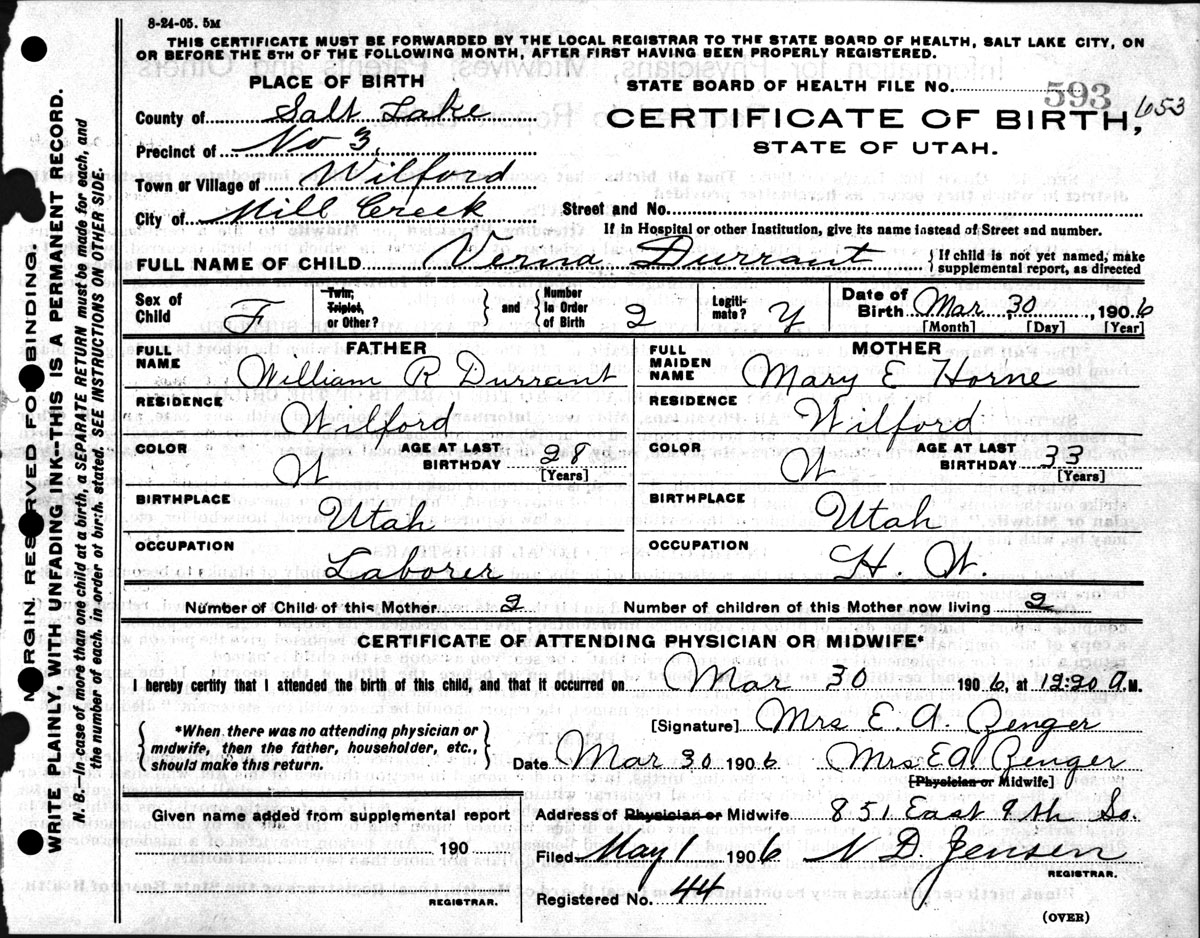 8-24-05. 5M
THIS CERTIFICATE MUST BE FORWARDED BY THE LOCAL REGISTRAR TO THE STATE BOARD OF HEALTH, SALT LAKE CITY, ON
OR BEFORE THE 5TH OF THE FOLLOWING MONTH, AFTER FIRST HAVING BEEN PROPERLY REGISTERED.
PLACE OF BIRTH
County of Salt Lake
Precinct of No 3,
Town or Village of Wilford
City of Mill Creek
STATE BOARD OF HEALTH FILE No. 593 653
CERTIFICATE OF BIRTH,
STATE OF UTAH.
Street and No.
If in Hospital or other Institution, give its name instead of Street and number.
FULL NAME OF CHILD Verna Durrant { If child is not yet named, make
supplemental report, as directed
Sex of Child F
Twin, Triplet, or Other? } and { Number in Order of Birth 2
Legitimate? Y
Date of Birth Mar 30, 1906
[Month] [Day] [Year]
FATHER
FULL NAME William R Durrant
RESIDENCE
Wilford
COLOR W AGE AT LAST BIRTHDAY 28
[Years]
BIRTHPLACE
Utah
OCCUPATION
Laborer
MOTHER
FULL MAIDEN NAME Mary E Horne
RESIDENCE
Wilford
COLOR W AGE AT LAST BIRTHDAY 33
[Years]
BIRTHPLACE
Utah
OCCUPATION
H. W.
Number of Child of this Mother 2 Number of children of this Mother now living 2
CERTIFICATE OF ATTENDING PHYSICIAN OR MIDWIFE*
I hereby certify that I attended the birth of this child, and that it occurred on Mar 30 1906, at 12:20 A.M.
{ *When there was no attending physician or
midwife, then the father, householder, etc.,
should make this return. }
[Signature] Mrs E. A. Zenger
Date Mar 30 1906 Mrs E A. Zenger
[Physician or Midwife]
Given name added from supplemental report
190
REGISTRAR.
Address of Physician or Midwife 851 East 9th So.
Filed May 1 1906 N D. Jensen
REGISTRAR.
Registered No. 44
(OVER)
MARGIN RESERVED FOR BINDING.
WRITE PLAINLY, WITH UNFADING INK—THIS IS A PERMANENT RECORD.
N. B.—In case of more than one child at a birth, a SEPARATE RETURN must be made for each, and
the number of each, in order of birth, stated. SEE INSTRUCTIONS ON OTHER SIDE.